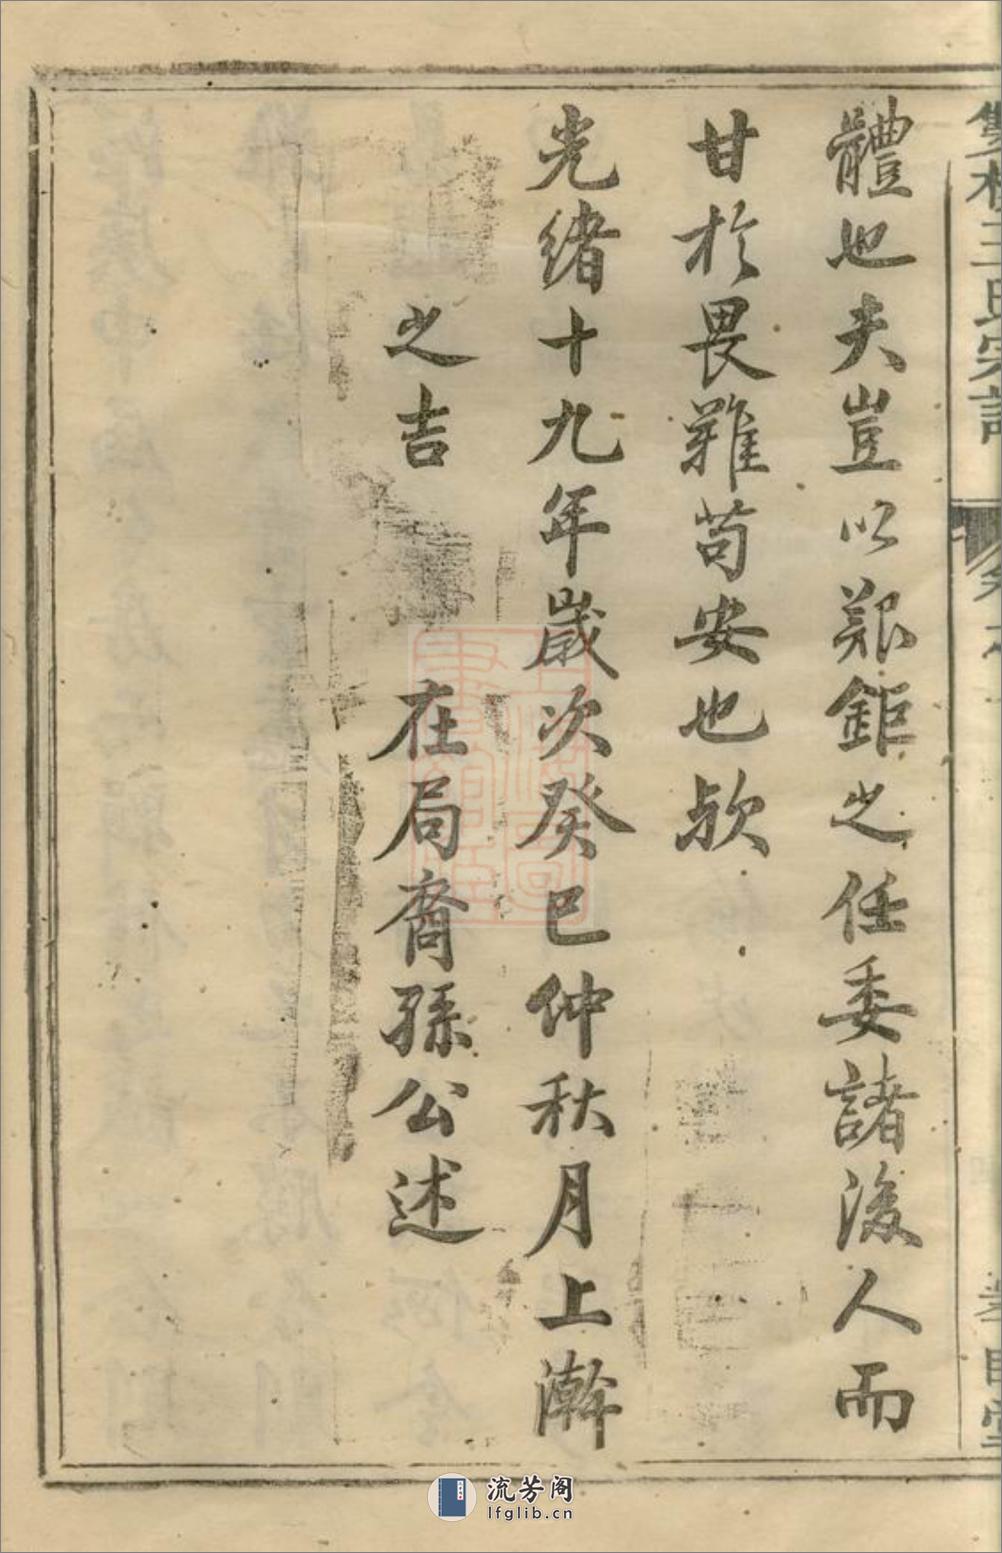 體也夫豈以艱鉅之任委諸後人而
甘於畏難苟安也歟
光緒十九年歲次癸巳仲秋月上澣
之吉
在局裔孫公述
王氏宗譜
流芳阁
lfglib.cn